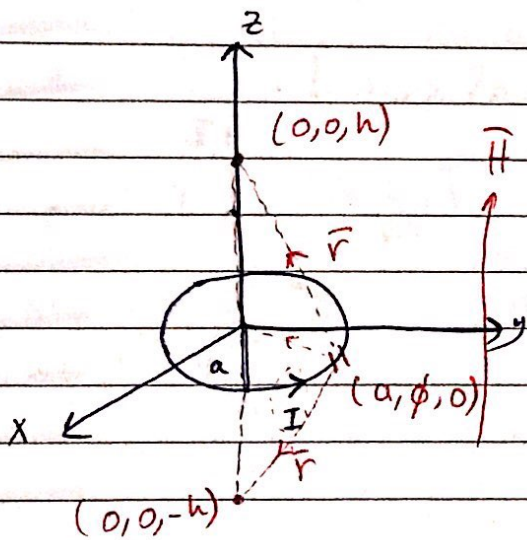 Z
(0,0,h)
H̄
r̄
y
a
(a,ϕ,0)
I
X
r̄
(0,0,-h)